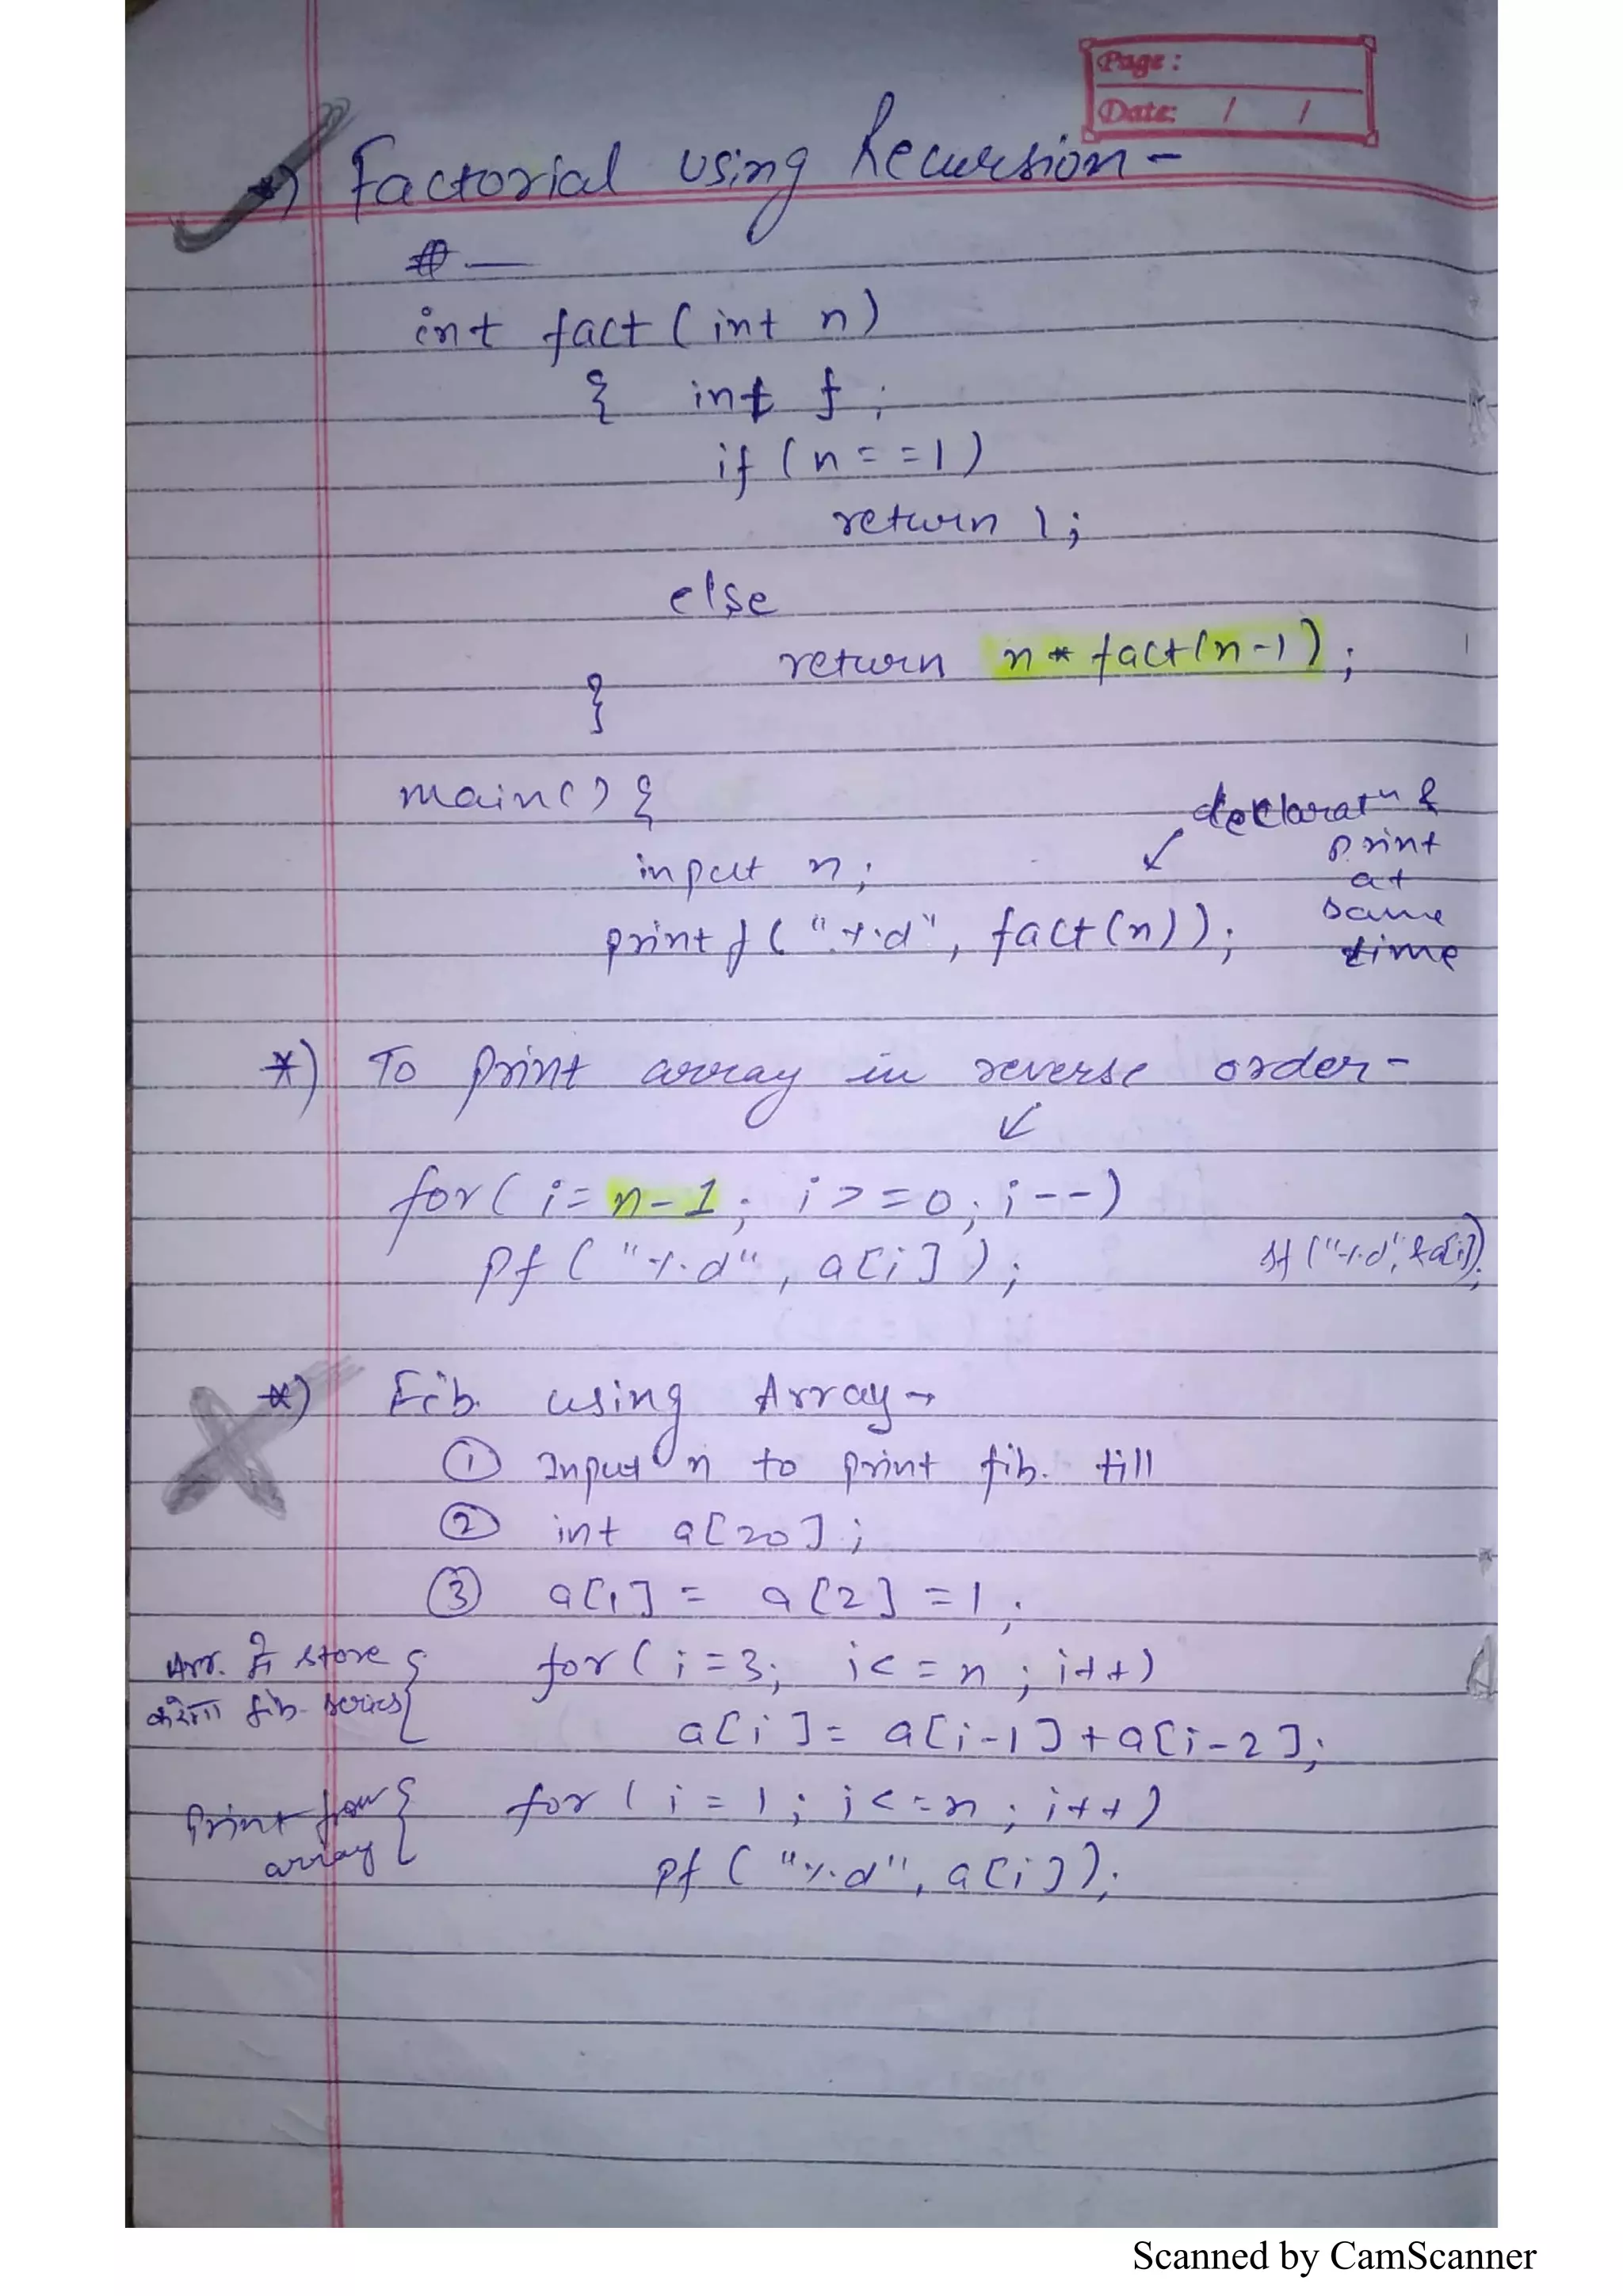 Page :
Date: / /
*) Factorial using Recursion -
# —
int fact (int n)
{ int f ;
if (n = = 1)
return 1 ;
else
return n * fact(n-1) ;
}
main() {
input n ;
printf ( "%d", fact (n) ) ;
declaratn &
print
at
same
time
*) To print array in reverse order -
↙
for ( i = n-1 ; i >= 0 ; i -- )
pf ( "%d", a[i] ) ;
sf ("%d", &a[i]);
*) Fib. using Array →
① Input n to print fib. till
② int a[20] ;
③ a[1] = a[2] = 1 ;
Arr. में store
करेगा fib. series
for ( i = 3 ; i <= n ; i++ )
a[i] = a[i-1] + a[i-2] ;
Print from
array
for ( i = 1 ; i <= n ; i++ )
pf ( "%d", a[i] ) ;
Scanned by CamScanner